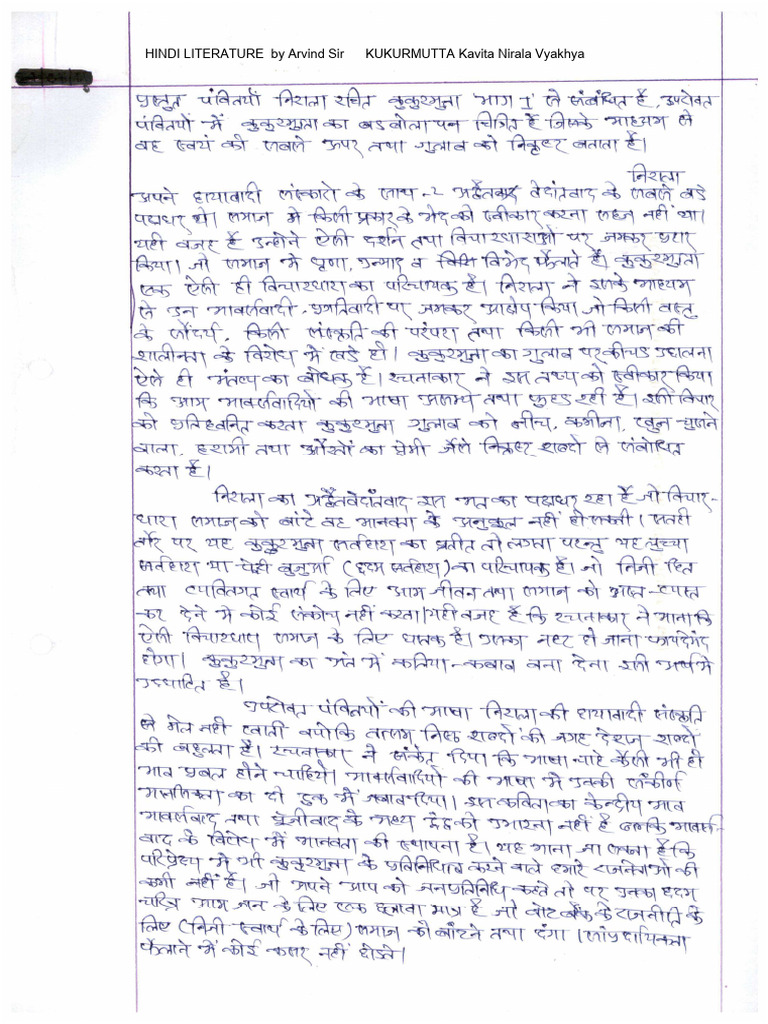 HINDI LITERATURE by Arvind Sir KUKURMUTTA Kavita Nirala Vyakhya
प्रस्तुत पंक्तियाँ निराला रचित कुकुरमुत्ता भाग I से संबंधित है, उपरोक्त
पंक्तियों में कुकुरमुत्ता का बडबोलापन चित्रित है जिसके माध्यम से
वह स्वयं को सबसे ऊपर तथा गुलाब को निकृष्ट बताता है।
निराला
अपने छायावादी संस्कारो के साथ-2 अद्वैतवाद वेदांतवाद के सबसे बडे
पक्षधर थे। समाज में किसी प्रकार के भेद को स्वीकार करना सहज नहीं था।
यही वजह है उन्होंने ऐसी दर्शन तथा विचारधाराओ पर जमकर प्रहार
किया। जो समाज में घृणा, उन्माद व विभेद फैलाते हैं। कुकुरमुत्ता
एक ऐसी ही विचारधारा का परिचायक है। निराला ने इसके माध्यम
से उन मार्क्सवादी-प्रगतिवादी पर जमकर आक्षेप किया जो किसी वस्तु
के सौंदर्य, किसी संस्कृति की परंपरा तथा किसी भी समाज की
शालीनता के विरोध में खडे हो। कुकुरमुत्ता का गुलाब पर कीचड उछालना
ऐसे ही मंतव्य का बोधक है। रचनाकार ने इस तथ्य को स्वीकार किया
कि आम मार्क्सवादियो की भाषा असभ्य तथा फुहड रही है। इसी विचार
को प्रतिध्वनित करता कुकुरमुत्ता गुलाब को नीच, कमीना, खुन चुसने
वाला, हरामी तथा औरतों का प्रेमी जैसे निकृष्ट शब्दो से संबोधित
करता है।
निराला का अद्वैतवेदांतवाद इस मत का पक्षधर रहा है जो विचार-
धारा समाज को बांटे वह मानवता के अनुकूल नहीं हो सकती। सतही
तौर पर यह कुकुरमुत्ता सर्वहारा का प्रतीत तो लगता परन्तु यह लुच्चा
सर्वहारा या पेटी बुर्जुआ (छद्म सर्वहारा) का परिचायक है। जो निजी हित
तथा व्यक्तिगत स्वार्थ के लिए आम जीवन तथा समाज को अस्त-व्यस्त
कर देने में कोई संकोच नहीं करता। यही वजह है कि रचनाकार ने माना कि
ऐसी विचारधारा समाज के लिए घातक है। उसका नष्ट हो जाना फायदेमंद
होगा। कुकुरमुत्ता का अंत में कलिया-कबाब बना देना इसी अर्थ में
उद्घाटित है।
उपरोक्त पंक्तियों की भाषा निराला की छायावादी संस्कृति
से मेल नही खाती क्योकि तत्सम निष्ठ शब्दो की जगह देशज शब्दो
की बहुलता है। रचनाकार ने संकेत दिया कि भाषा चाहे कैसी भी हो
भाव प्रबल होने चाहिये। मार्क्सवादियो की भाषा मे उनकी संकीर्ण
मानसिकता का दो टुक में जबाब दिया। इस कविता का केन्द्रीय भाव
मार्क्सवाद तथा पूंजीवाद के मध्य द्वंद्व को उभारना नहीं है बल्कि मार्क्स-
वाद के विरोध में मानवता की स्थापना है। यह माना जा सकता है कि
परिप्रेक्ष्य में भी कुकुरमुत्ता के प्रतिनिधित्व करने वाले हमारे राजनेताओ की
कमी नहीं है। जो अपने आप को जनप्रतिनिधि कहते तो पर उनका छद्म
चरित्र आम जन के लिए एक छलावा मात्र है जो वोट बैंक के राजनीति के
लिए (निजी स्वार्थ के लिए) समाज को बाँटने तथा दंगा। सांप्रदायिकता
फैलाने में कोई कसर नहीं छोडते।